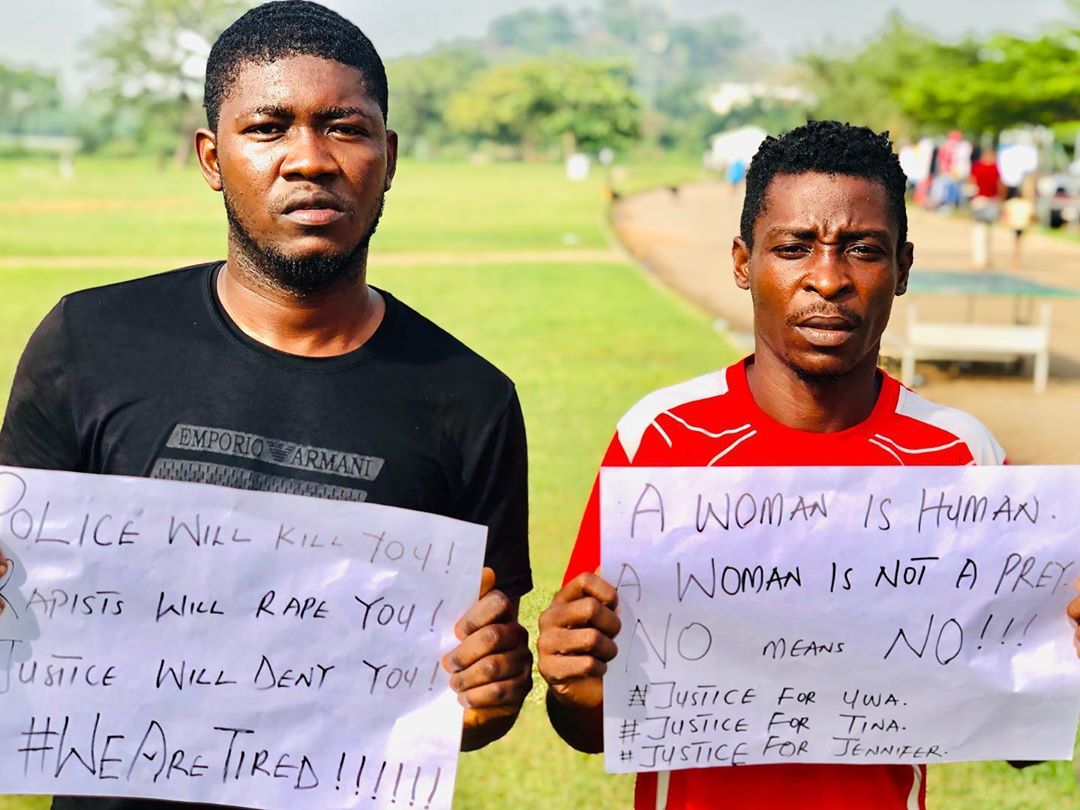 EMPORIO ARMANI
POLICE WILL KILL YOU!
RAPISTS WILL RAPE YOU!
JUSTICE WILL DENY YOU!
#WEARETIRED!!!!!!
A WOMAN IS HUMAN.
A WOMAN IS NOT A PREY.
NO MEANS NO!!!
#JUSTICE FOR UWA.
#JUSTICE FOR TINA.
#JUSTICE FOR JENNIFER.